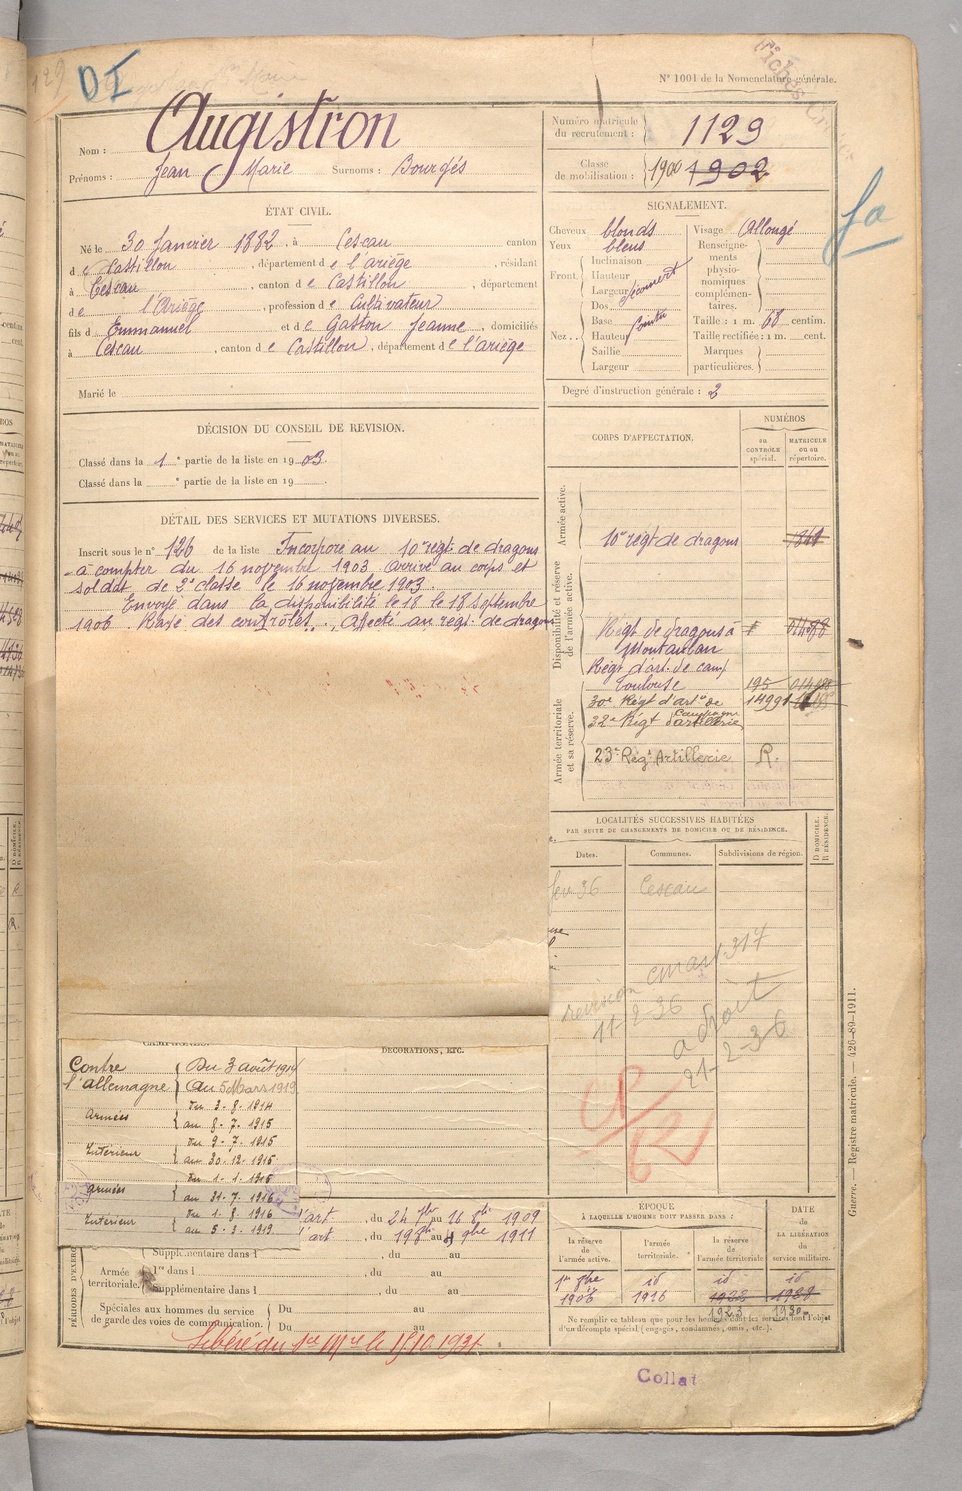 DI
N° 1001 de la Nomenclature générale.
Nom : Augistron
Prénoms : Jean Marie Surnoms : Bourgés
Numéro matricule du recrutement : 1129
Classe de mobilisation : 1900 1902
ÉTAT CIVIL.
Né le 30 Janvier 1882, à Cescau canton
de Castillon, département de l'ariège, résidant
à Cescau, canton de Castillon, département
de l'Ariège, profession de Cultivateur
fils d Emmanuel et de Gaston Jeanne, domiciliés
à Cescau, canton de Castillon, département de l'ariège
Marié le
SIGNALEMENT.
Cheveux blonds
Yeux bleus
Front. Inclinaison
Hauteur
Largeur
Nez. Dos
Base
Hauteur
Saillie
Largeur
Visage Allongé
Renseignements physionomiques complémentaires.
Taille : 1 m. 68 centim.
Taille rectifiée : 1 m. cent.
Marques particulières.
Degré d'instruction générale : 2
fa
DÉCISION DU CONSEIL DE REVISION.
Classé dans la 1e partie de la liste en 1903.
Classé dans la e partie de la liste en 19
DÉTAIL DES SERVICES ET MUTATIONS DIVERSES.
Inscrit sous le n° 126 de la liste Incorporé au 10e régt. de dragons
à compter du 16 novembre 1903 arrivé au corps et
soldat de 2e classe le 16 novembre 1903.
Envoyé dans la disponibilité le 18 le 18 septembre
1906. Rayé des contrôles. Affecté au régt. de dragons
CORPS D'AFFECTATION.
NUMÉROS
au CONTRÔLE spécial.
MATRICULE ou au répertoire.
Armée active.
10e régt de dragons
Disponibilité et réserve de l'armée active.
Régt de dragons à
Montauban
Régt d'art. de camp
Toulouse 195
Armée territoriale et sa réserve.
30e Régt d'artie de
Campagne
32e Régt d'artillerie
23e Régt Artillerie R.
LOCALITÉS SUCCESSIVES HABITÉES
PAR SUITE DE CHANGEMENTS DE DOMICILE OU DE RÉSIDENCE.
Dates. Communes. Subdivisions de région. D DOMICILE. R RÉSIDENCE.
fev 36 Cescau
revision
11-2-36
adjoint
21-2-36
DÉCORATIONS, ETC.
Contre l'allemagne Du 3 août 1914
Au 5 Mars 1919
Armées du 3-8-1914
au 8-7-1915
Intérieur du 9-7-1915
au 30-12-1915
Armées du 1-1-1916
au 31-7-1916
Intérieur du 1-8-1916
au 5-3-1919
l'art, du 24 7bre au 16 8bre 1909
l'art, du 19 8bre au 4 9bre 1911
Supplémentaire dans l , du au
Armée territoriale. 1re dans l , du au
Supplémentaire dans l , du au
Spéciales aux hommes du service de garde des voies de communication. Du au
Du au
Libéré du Sce Mre le 15.10.1931.
ÉPOQUE
À LAQUELLE L'HOMME DOIT PASSER DANS :
la réserve de l'armée active. l'armée territoriale. la réserve de l'armée territoriale
DATE DE LA LIBÉRATION du service militaire.
1er 9bre id id id
1906 1916 1922 1928
1923 1930
Ne remplir ce tableau que pour les hommes dont les services font l'objet d'un décompte spécial (engagés, condamnés, omis, etc.).
Guerre. — Registre matricule. — 426-89-1911.
Collat